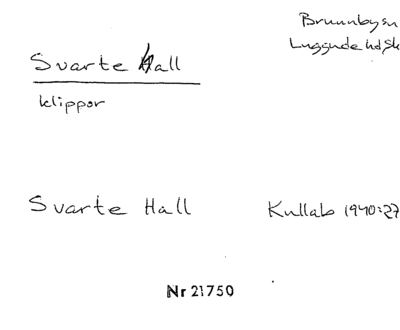 Brunnbysn
Luggude hd Sk
Svarte Hall
klippor
Svarte Hall
Kullab 1940:27
Nr 21750